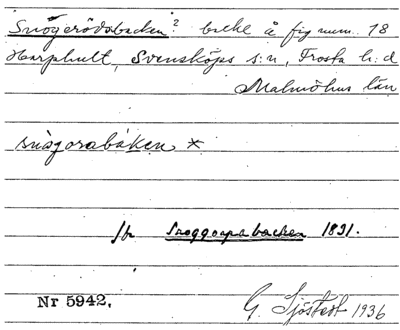 Snogerödsbacken? backe å fig num. 18
Harphult, Svensköps s:n, Frosta h:d
Malmöhus län
snògorabàken *
Jfr Snoggarpabacken 1821.
Nr 5942,
G. Sjöstedt 1936